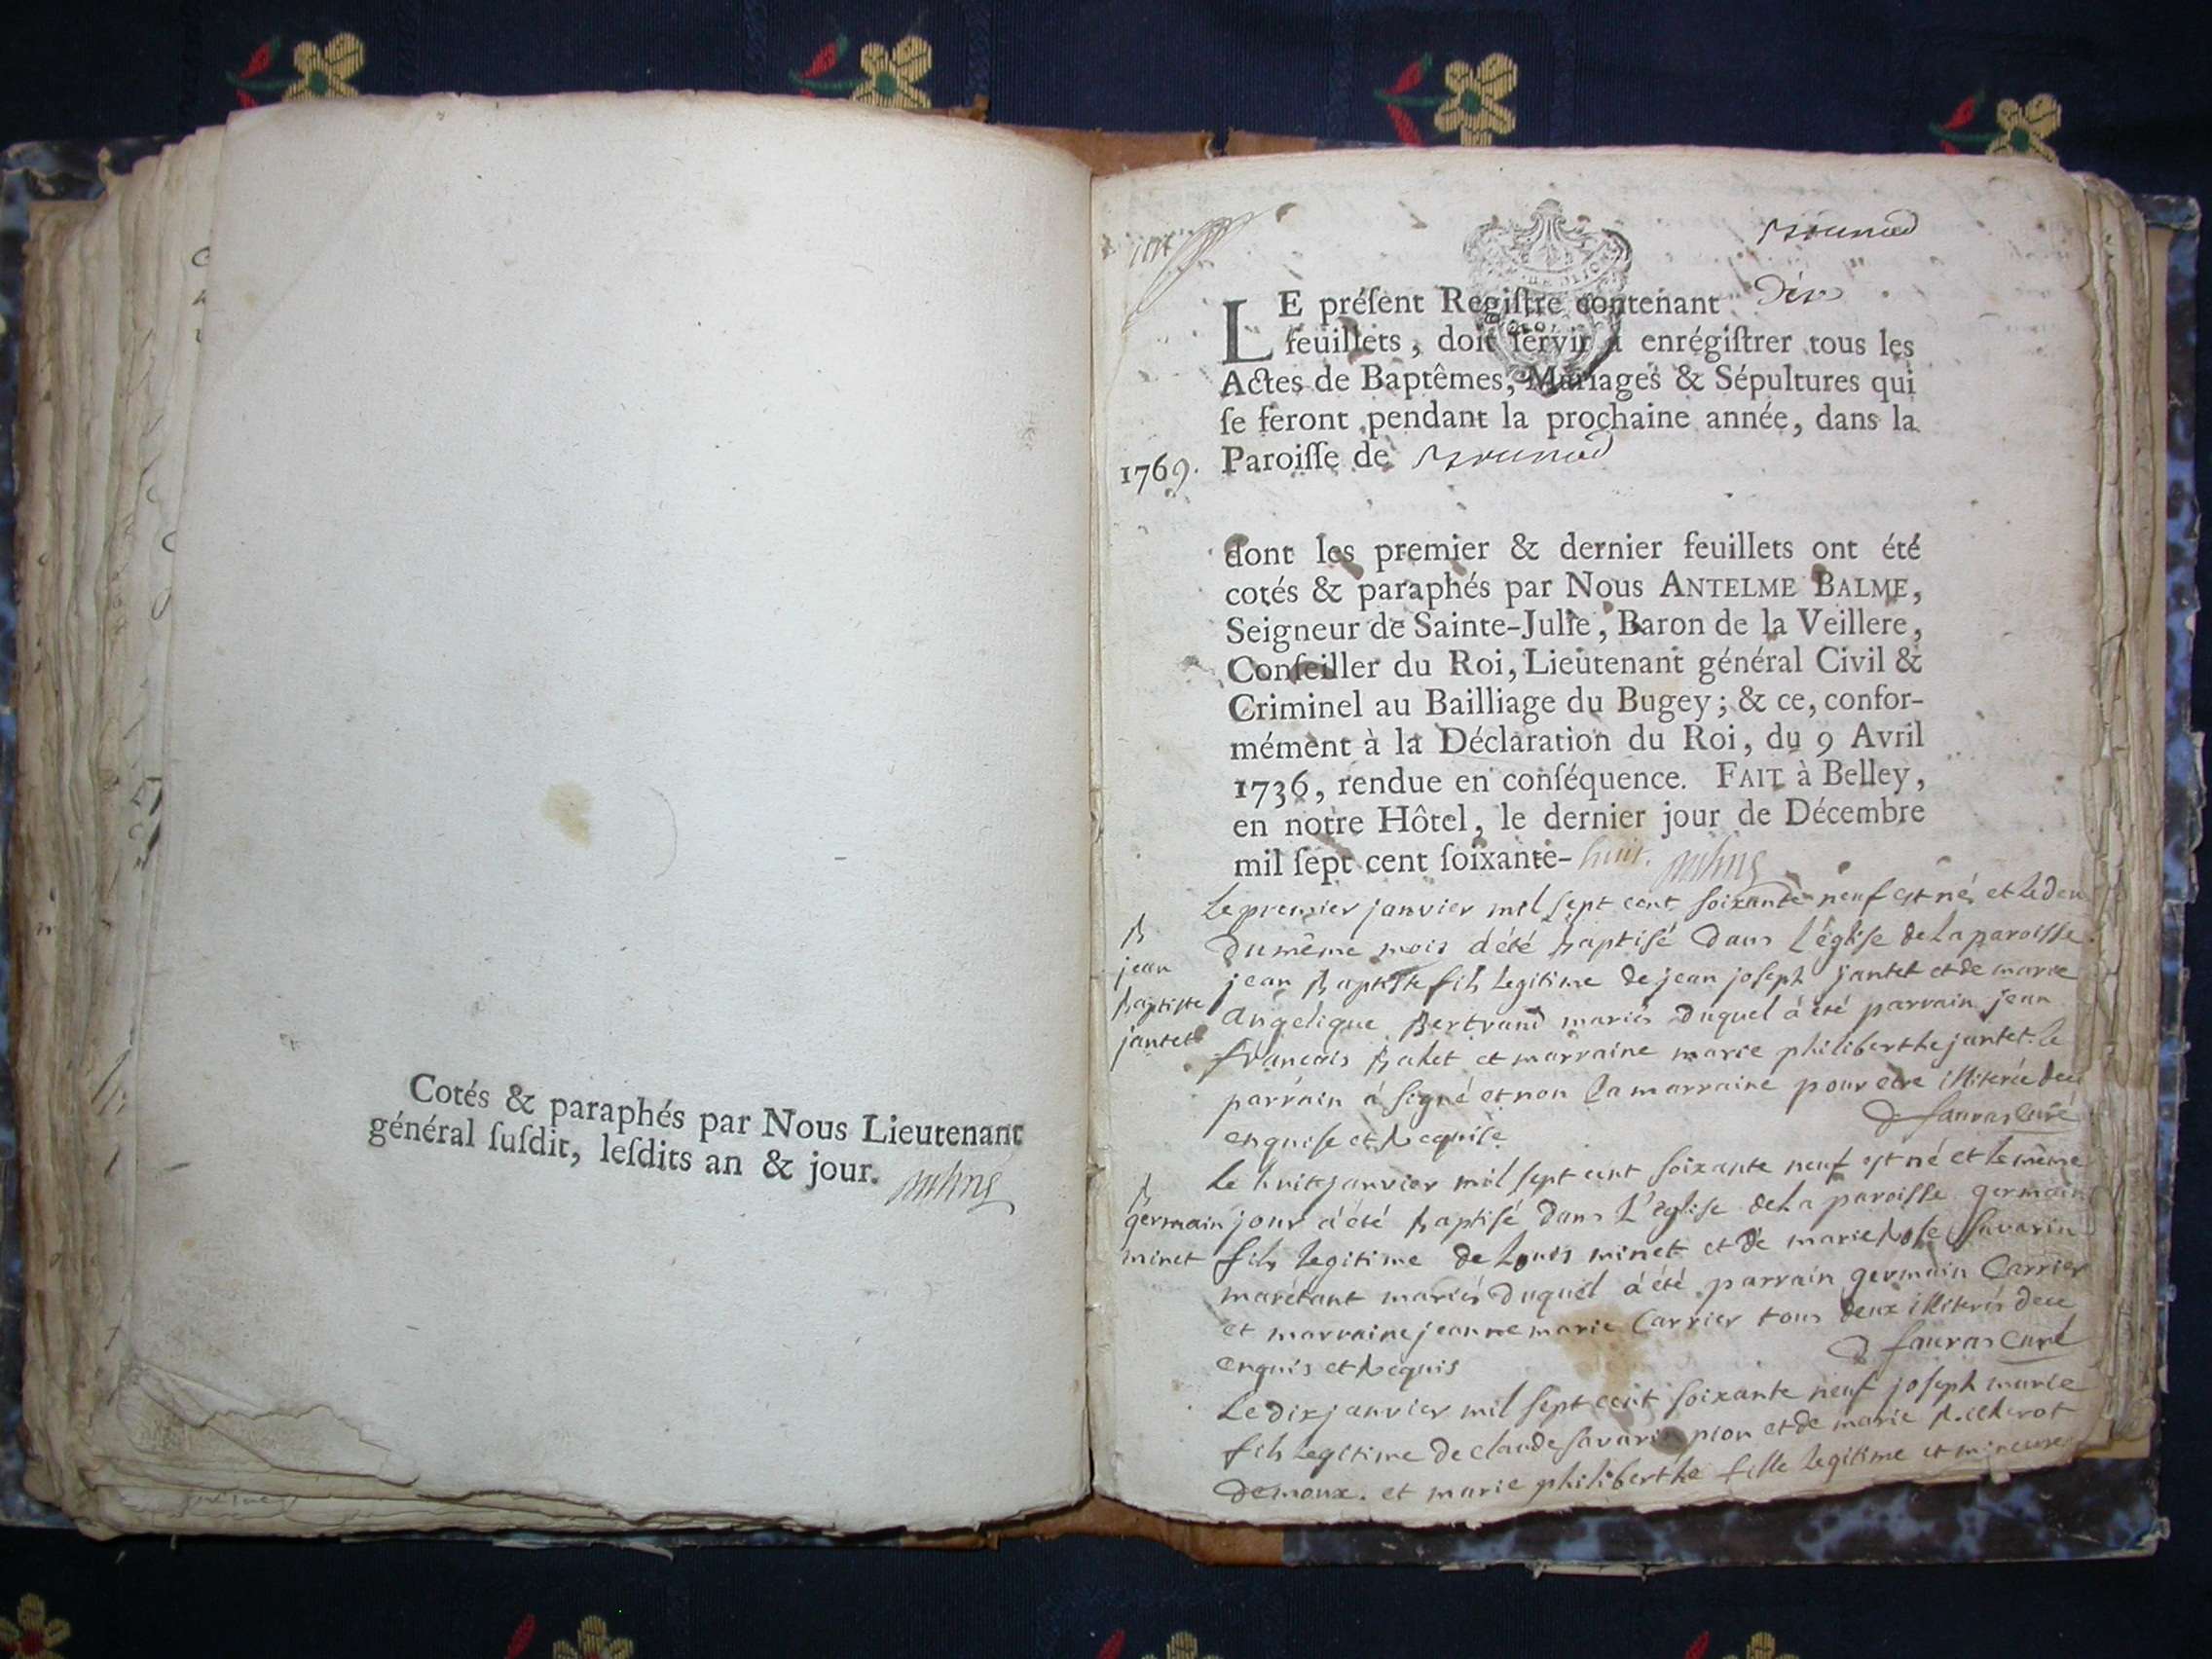 Cotés & paraphés par Nous Lieutenant
général ſuſdit, leſdits an & jour.
LE préſent Regiſtre contenant Dix
feuillets, doit ſervir à enrégiſtrer tous les
Actes de Baptêmes, Mariages & Sépultures qui
ſe feront pendant la prochaine année, dans la
1769. Paroiſſe de
dont les premier & dernier feuillets ont été
cotés & paraphés par Nous ANTELME BALME,
Seigneur de Sainte-Julie, Baron de la Veillere,
Conſeiller du Roi, Lieutenant général Civil &
Criminel au Bailliage du Bugey; & ce, confor-
mément à la Déclaration du Roi, du 9 Avril
1736, rendue en conſéquence. FAIT à Belley,
en notre Hôtel, le dernier jour de Décembre
mil ſept cent ſoixante-huit.
Le premier janvier mil sept cent soixante neuf est né et le deu
du même mois a été baptisé dans l'église de la paroisse
jean baptiste fils legitime de jean joseph jantet et de marie
angelique Bertrand mariés duquel à été parrain jean
francois et marraine marie philiberthe jantet le
parrain à signé et non la marraine pour etre illiterée de ce
enquise et requise
fauras curé
B
jean
baptiste
jantet
Le huit janvier mil sept cent soixante neuf est né et le même
jour à été baptisé dans l'église de la paroisse germain
fils legitime de Louis minet et de marie rose savarin
mariés duquel à été parrain germain Carrier
et marraine jeanne marie Carrier tous deux illiterés de ce
enquis et requis
fauras curé
B
germain
minet
Le dix janvier mil sept cent soixante neuf joseph marie
fils legitime de claude savarin pion et de marie
et marie philiberthe fille legitime et mineure